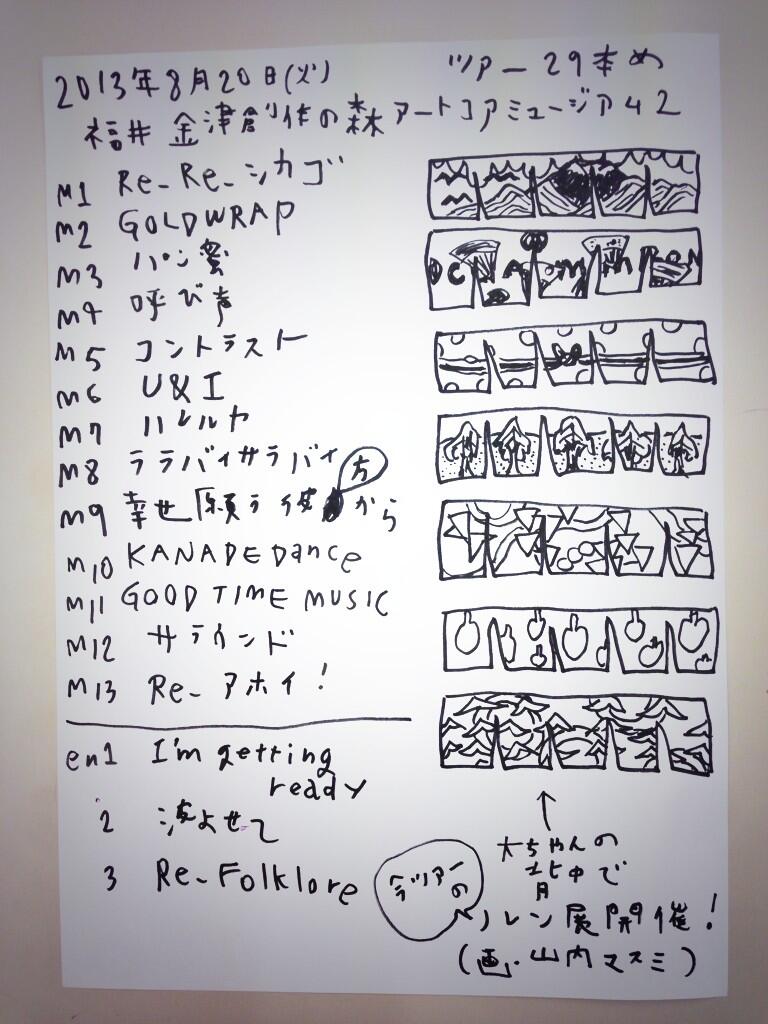 2013年8月20日(火) ツアー 29本め
福井 金津創作の森アートコアミュージアム42
M1 Re-Re-シカゴ
M2 GOLDWRAP
M3 ハン蜜
M4 呼び声
M5 コントラスト
M6 U&I
M7 ハレルヤ
M8 ララバイサラバイ
M9 幸せ願う彼方から
M10 KANADEDance
M11 GOOD TIME MUSIC
M12 サラウンド
M13 Re-アホイ!
en1 I'm getting
ready
2 波よせて
3 Re-Folklore
大ちゃんの
背中で
今ツアーの
ノレン展開催!
(画・山内マスミ)